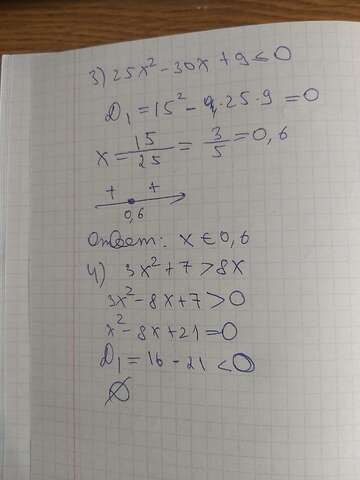 3) 25x² - 30x + 9 ≤ 0
D₁ = 15² - 9·25·9 = 0
x = 15/25 = 3/5 = 0,6
+ +
0,6
Ответ: x ∈ 0,6
4) 3x² + 7 > 8x
3x² - 8x + 7 > 0
x² - 8x + 21 = 0
D₁ = 16 - 21 < 0
∅